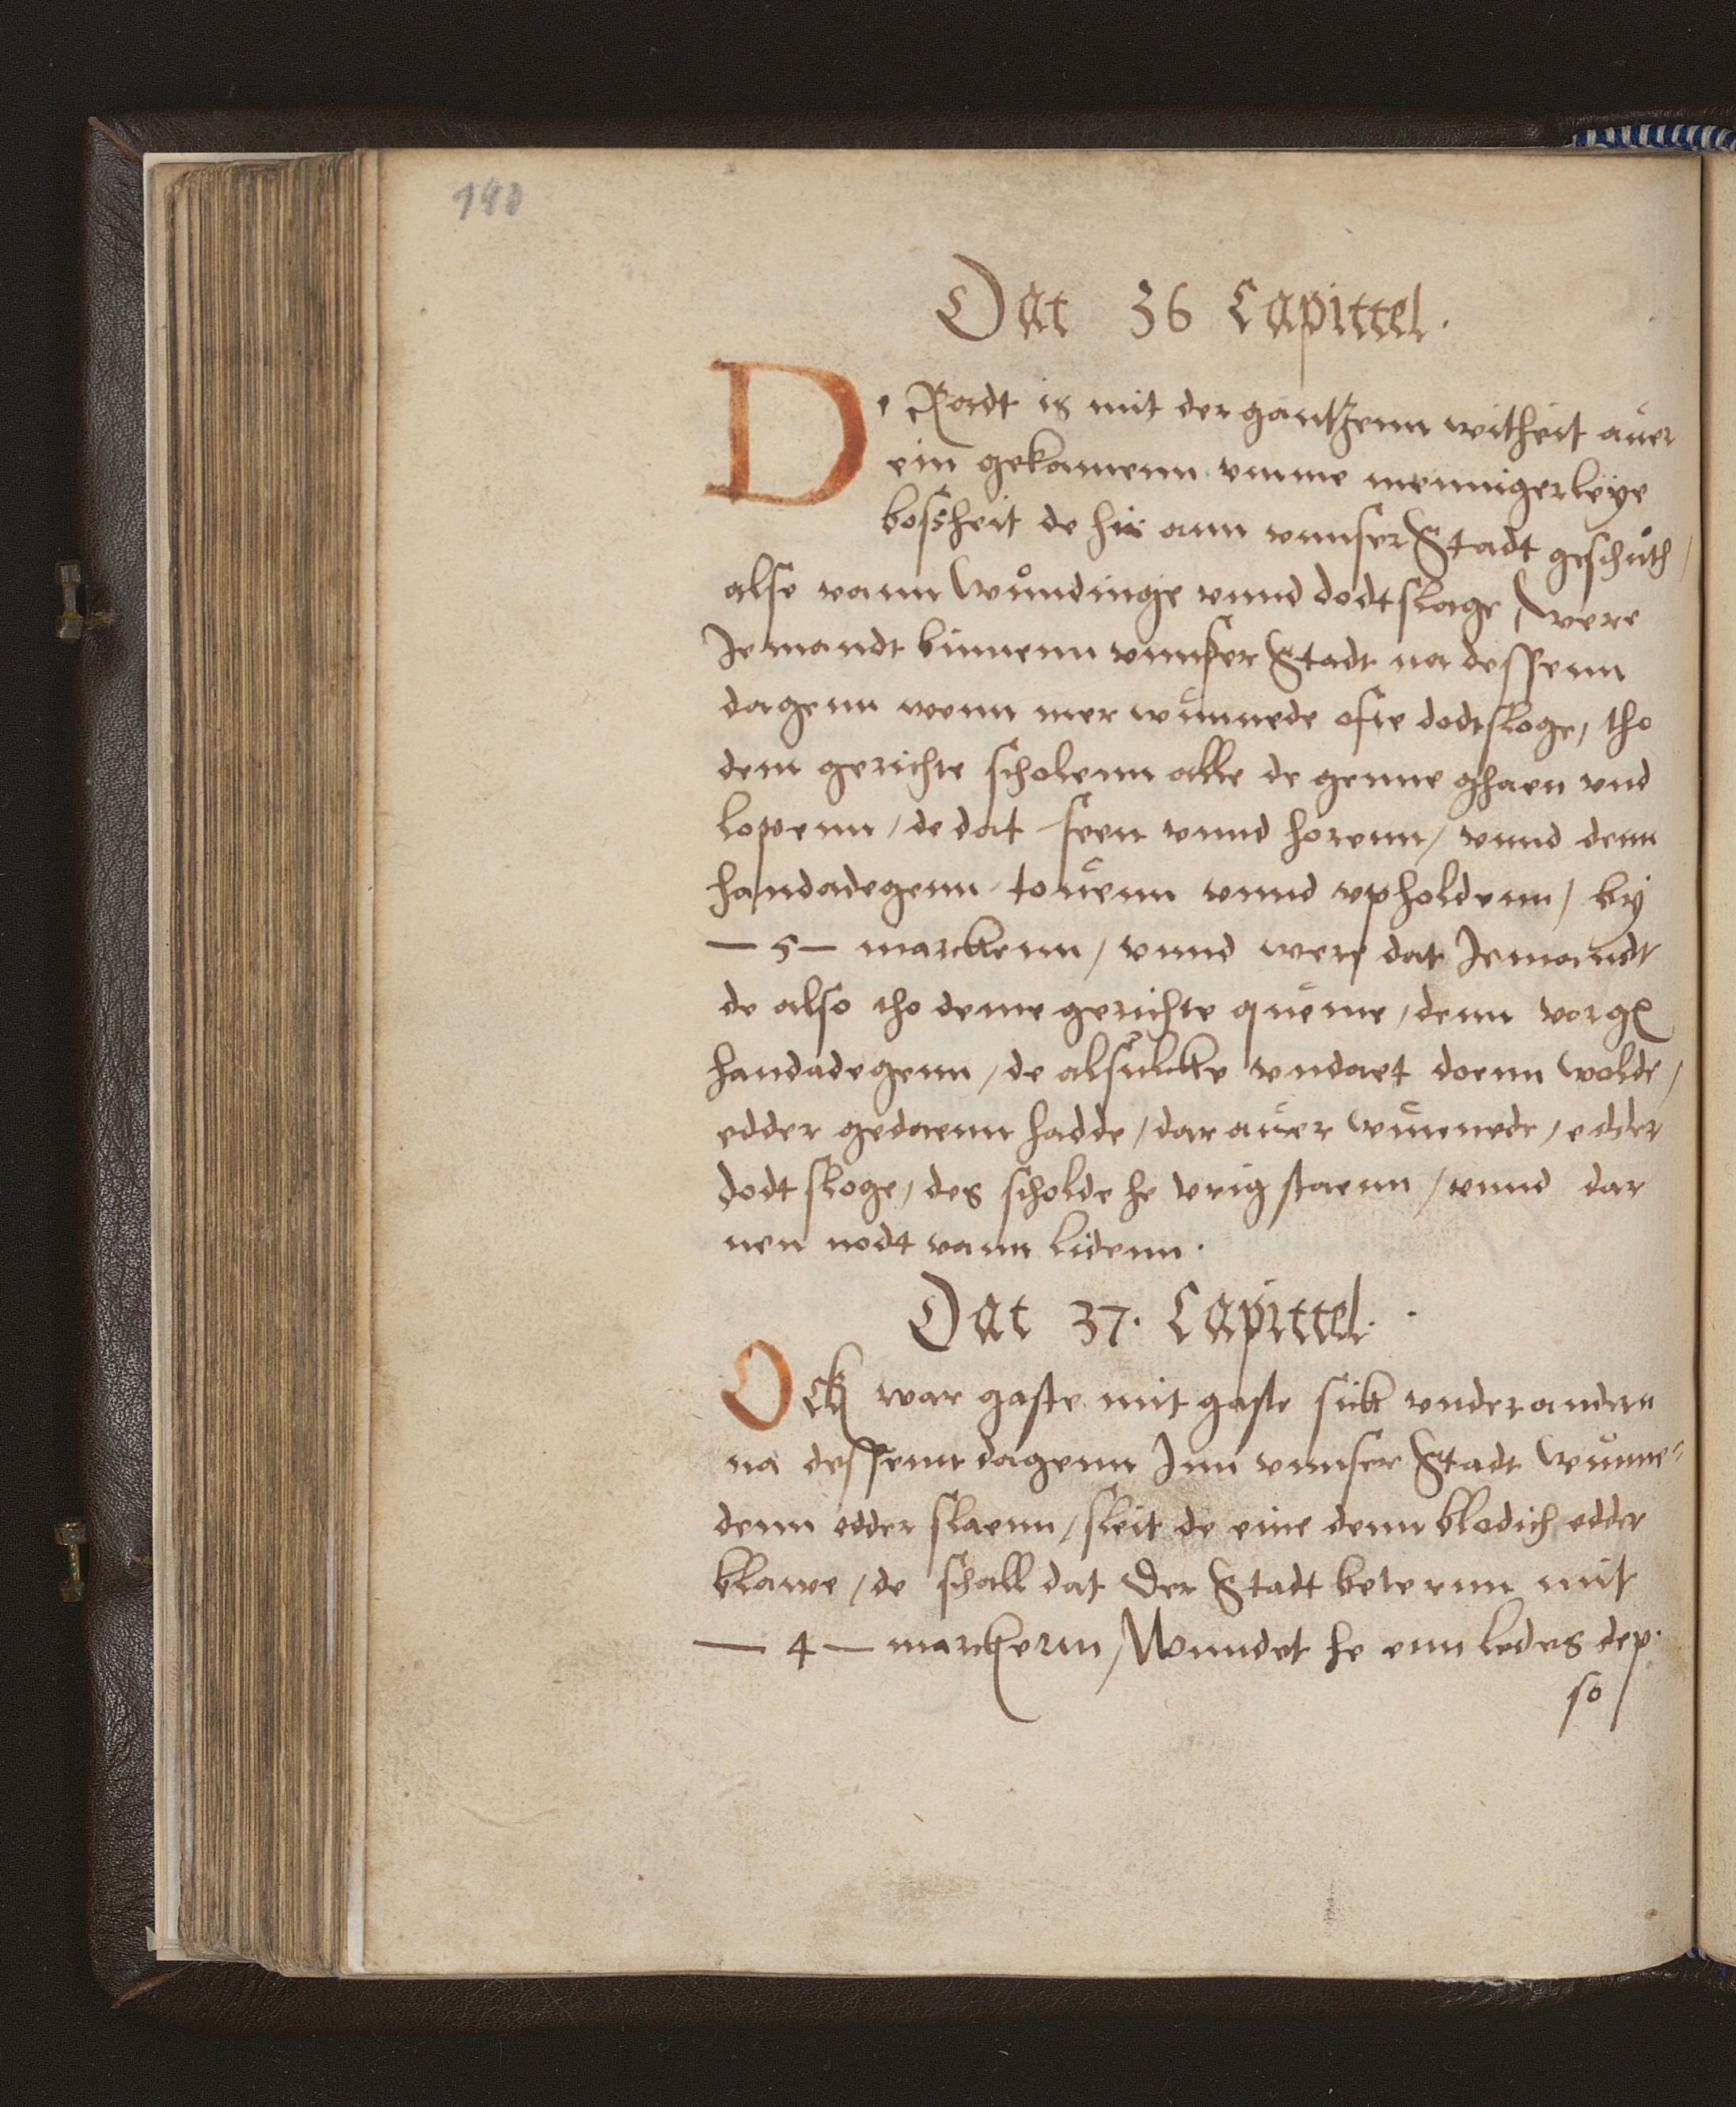 140
Dat 36 Capittel.
De Radt is mit der gantzenn witheit auer
ein gekamenn vmme mennigerleÿe
bosheit de hir ann vnnser Stadt geschůth /
alse vann Wůndinge vnnd dodtslage / Were
Jemandt binnenn vnnser Stadt na dessenn
dagenn wenn mer wůnnede ofte dodtsloge, tho
dem gerichte scholenn alle de genne ghaen vnd
lopenn / de dat seen vnnd horenn / vnnd denn
handadegenn touenn vnnd vpholdenn / bÿ
— 5 — marckenn / vnnd were dat Jemandt
de also tho deme gerichte queme / denn vorg
handadegenn / de alsulcke vndaet doenn wolde /
edder gedaenn hadde / dar auer wunnede / edder
dodt sloge / des scholde he vrig staenn / vnnd dar
nen nodt vann lidenn.
Dat 37. Capittel.
Ock war gaste mit gaste sick vnderandern
na dessenn dagenn Jnn vnnser Stadt wůnne-
denn edder slaenn / sleit de eine denn blodich edder
blawe / de schall dat der Stadt beternn mit
— 4 — marckenn / Wundet he enn ledes dep.
so